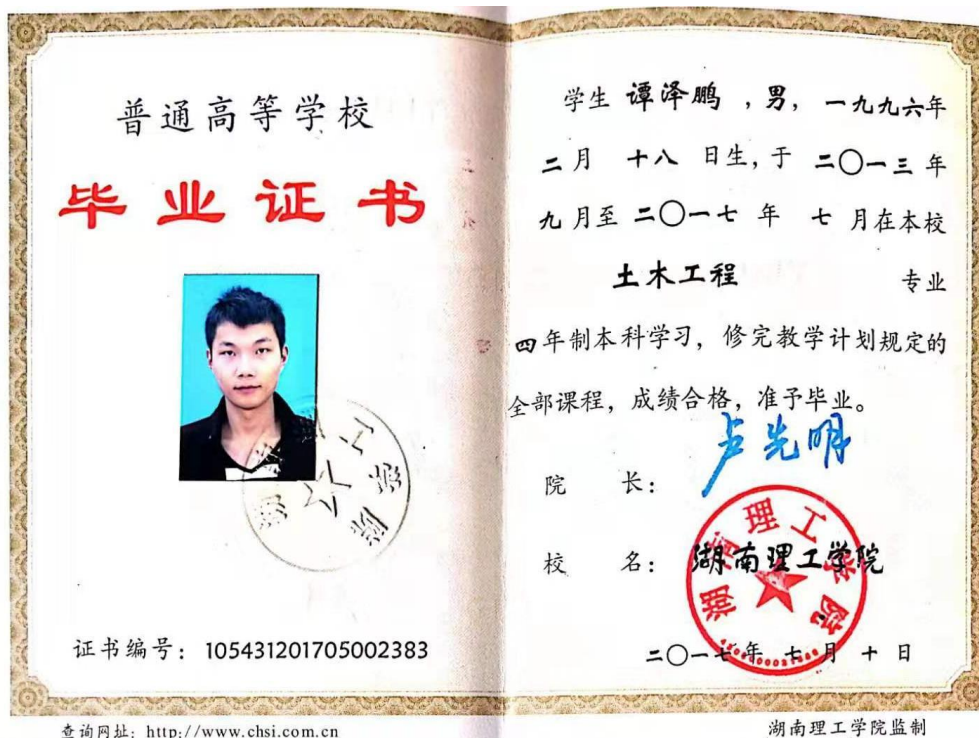 普通高等学校
毕业证书
证书编号：105431201705002383
查询网址：http://www.chsi.com.cn
学生 谭泽鹏 ，男，一九九六年
二月 十八 日生，于 二〇一三 年
九 月至 二〇一七 年 七 月在本校
土木工程 专业
四年制本科学习，修完教学计划规定的
全部课程，成绩合格，准予毕业。
院 长：卢先明
校 名：湖南理工学院
湖南理工学院
二〇一七年 七 月 十 日
湖南理工学院监制